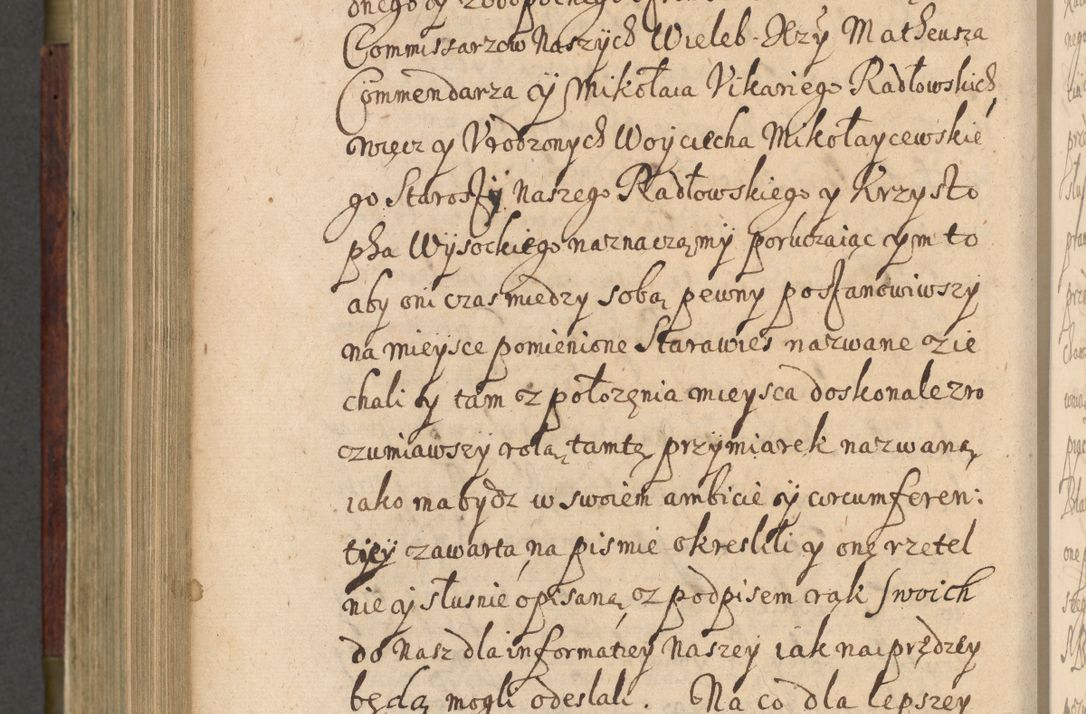 Commissarzow Naszych Wieleb. Xrzy Matheusza
Commendarza y Mikołaia Vikariego Radłowskich
więcz y Vrodzonych Woyciecha Mikołaycewskie
go Starosty Naszego Radłowskiego y Krzyszto
pha Wysockiego naznaczamy poruczaiąc ym to
aby oni czas miedzy sobą pewny postanowiwszy
na mieysce pomienione Starawies nazwane zie
chali y tam z położęnia mieysca doskonale zro
czumiawszy rolą tamtę przymiarek nazwaną
iako ma bydz w swoiem ambicie y circumferen:
tiey zawarta na pismie okreslili y onę rzetel
nie y słusnie opisaną z podpisem rąk swoich
do Nasz dla informatiey Naszey iak naiprędzey
będą mogli odeslali. Na co dla lepszey